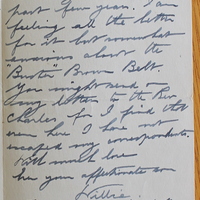 past few years. I am
feeling all the better
for it but somewhat
anxious about the
"Buster" Brown Belt.
You might send on
any letters to the Rev.
Charles for I find that
even here I have not
escaped my correspondents.
With much love
from your affectionate son
Willie.